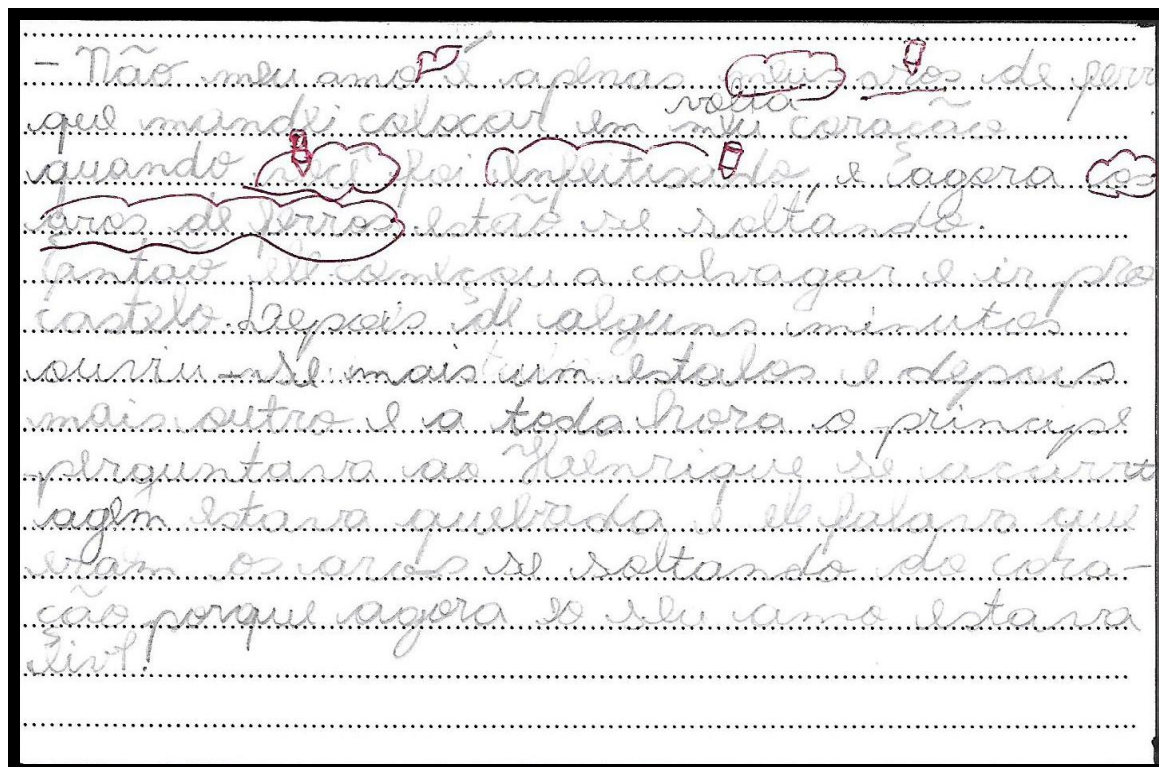 - Não meu amo é apenas meus aros de ferr
que mandei colocar em volta meu coração
quando você foi enfeitisado, e agora os
aros de ferros estão se soltando.
Então ele começou a calvagar e ir pro
castelo. Depois de alguns minutos
ouviu-se mais um estalos e depois
mais outro e a toda hora o príncipe
perguntava ao Heenrique se acarru
agem estava quebrada e ele falava que
eram os aros se soltando do cora-
ção porque agora o seu amo estava
livl.